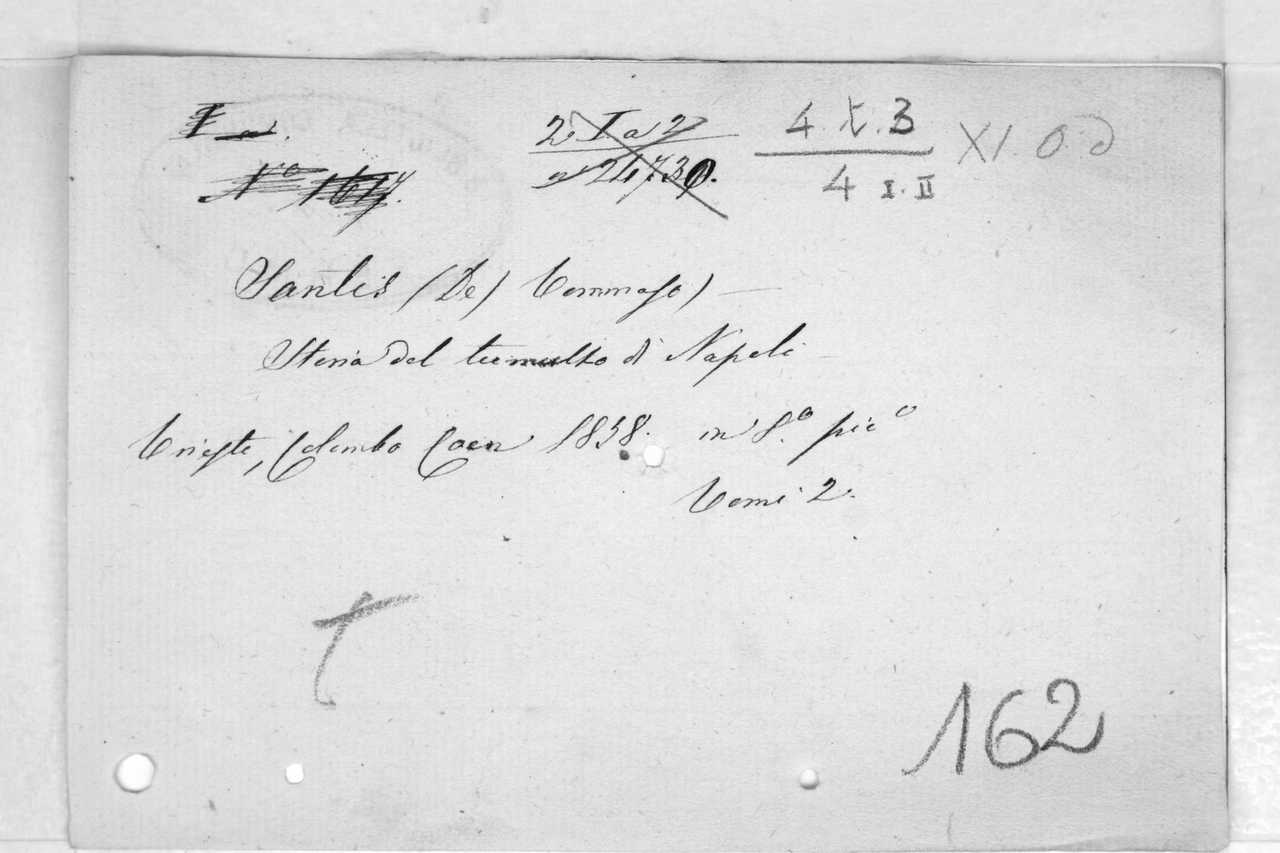 2. I a 27
a 24730.
4. t. 3
4 I. II
XI. O. d
Santis (De) Tommaso)
Storia del tumulto di Napoli
Trieste, Colombo Coen 1858. in 8.º picº
Tomi 2.
t
162